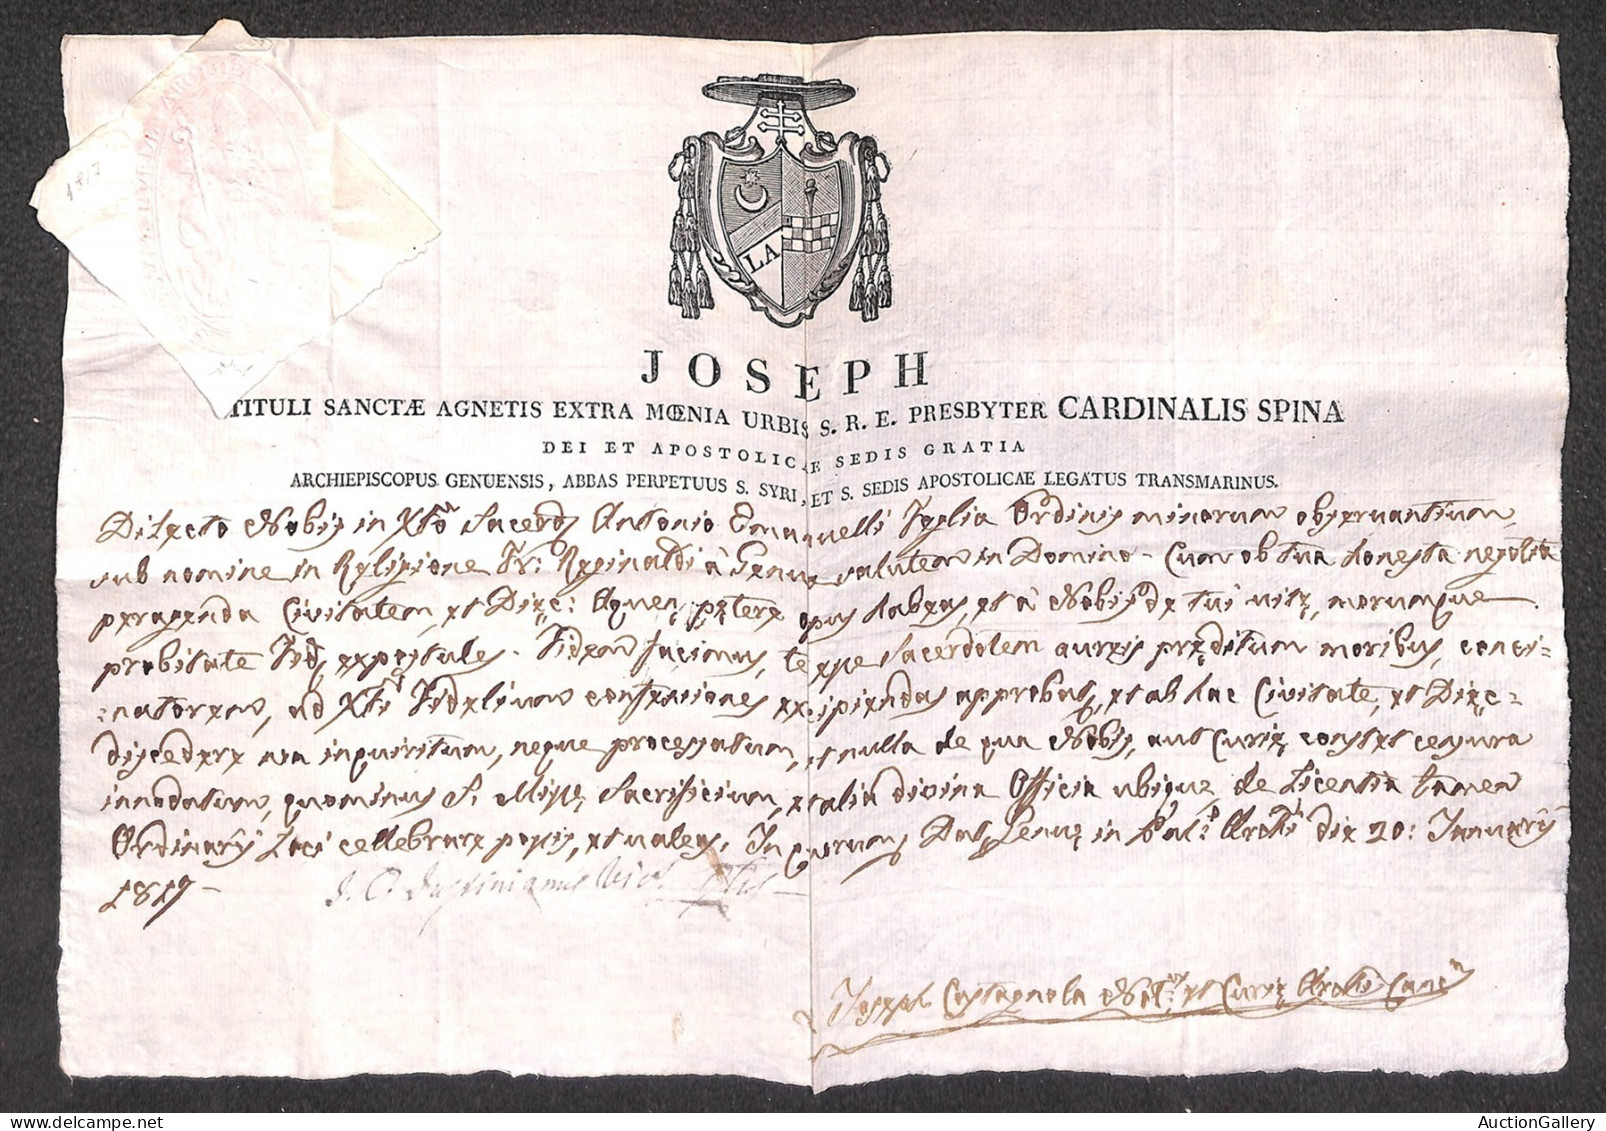 1817
LA
JOSEPH
TITULI SANCTÆ AGNETIS EXTRA MŒNIA URBIS S. R. E. PRESBYTER CARDINALIS SPINA
DEI ET APOSTOLICÆ SEDIS GRATIA
ARCHIEPISCOPUS GENUENSIS, ABBAS PERPETUUS S. SYRI, ET S. SEDIS APOSTOLICÆ LEGATUS TRANSMARINUS.
Dilecto Nobis in Xto Sacerd Antonio Emanuelli Ordinis minorum observantium,
sub nomine in Religione Fr: Reginaldi à Genua salutem in Domino - Cum ob tua honesta negotia
peragenda Civitatem, et Diæc: Aquen, petere opus habeas, et à Nobis de tui vitæ, morumque
probitate Fid expostules. Fidem facimus, teque Sacerdotem aureis præditum moribus, conci=
=natorem, ad Xti Fidelium confessiones excipiendas approbas, et ab hac Civitate, et Diæc=
discedere non inquisitum, neque processatum, et nulla de qua Nobis, aut Curiæ constet censura
innodatum, quominus S. Missæ Sacrificium, et alia divina Officia ubique de Licentia tamen
Ordinarÿ Loci cellebrare possis, et valeas. In quorum Dat Genuæ in Archi die 20: Januarÿ
1817 -
Justinianus Vic.
Joseph Castagnola Not. et Curiæ Canc
AuctionGallery